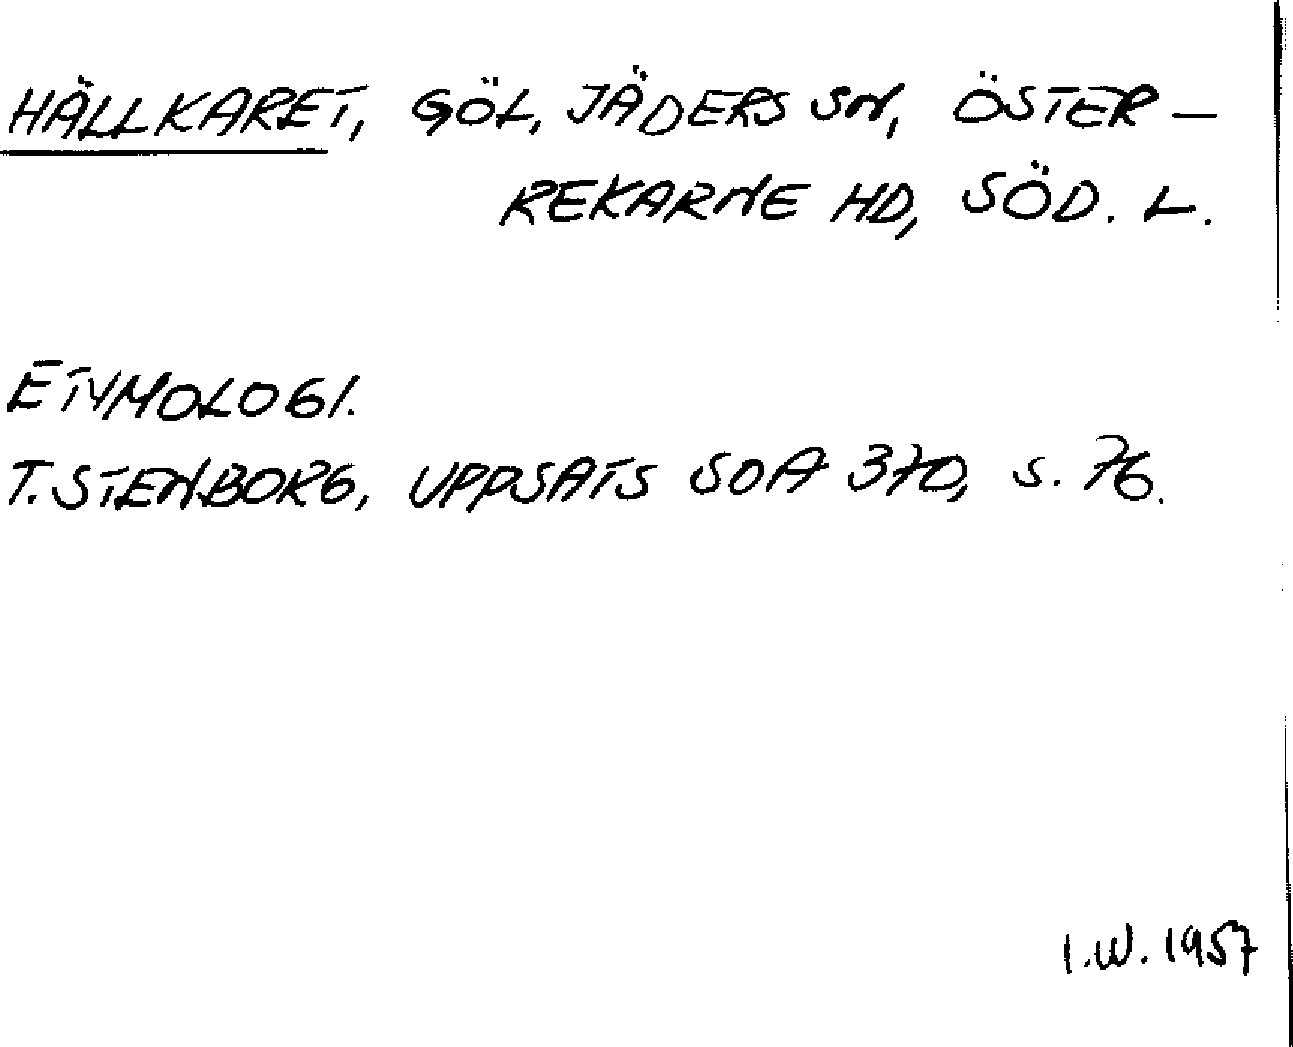 HÄLLKARET, GÖL, JÄDERS SN, ÖSTER-
REKARNE HD, SÖD. L.
ETYMOLOGI.
T. STENBORG, UPPSATS SOA 370, S. 76.
I.W. 1957